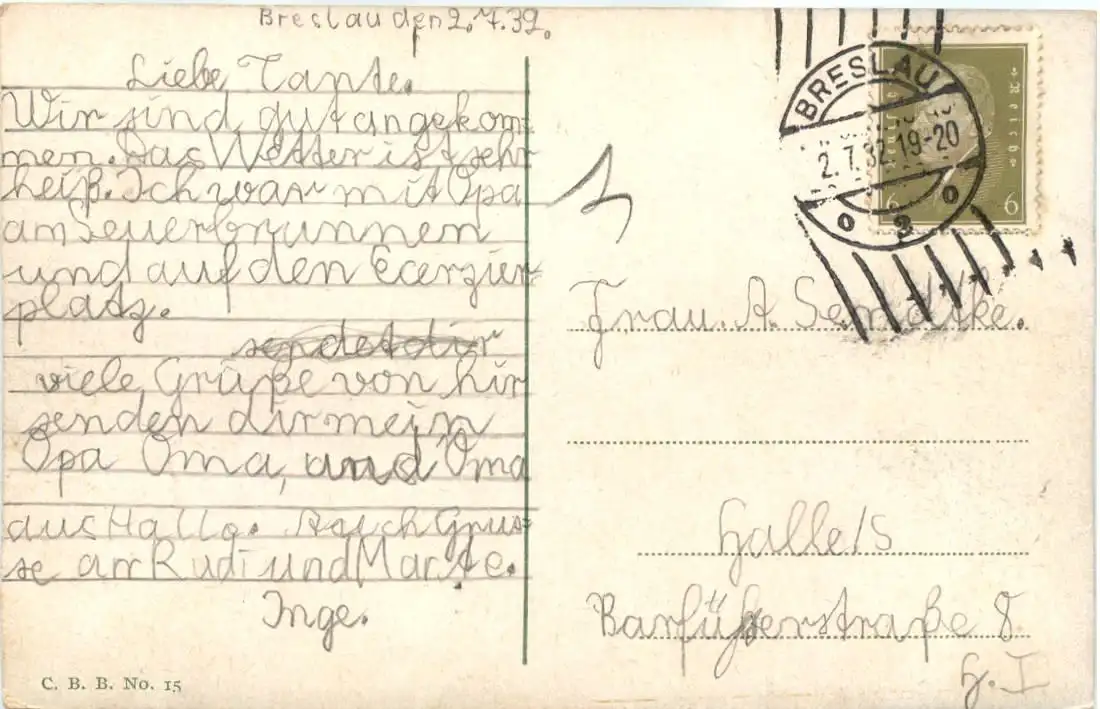 Breslau den 2.7.32.
Liebe Tante.
Wir sind gut angekom=
men. Das Wetter ist sehr
heiß. Ich war mit Opa
am Feuerbrunnen
und auf den Ecerzier-
platz.
sendet dir
viele Grüße von hir
senden dir mein
Opa Oma, und Oma
aus Halle. Auch Grüs=
se an Rudi und Marte.
Inge.
C. B. B. No. 15
BRESLAU
2.7.32.19-20
o 2 o
Deutsches Reich
6 6
Frau. A. Semdtke.
Halle/S
Barfüßerstraße 8
H. I